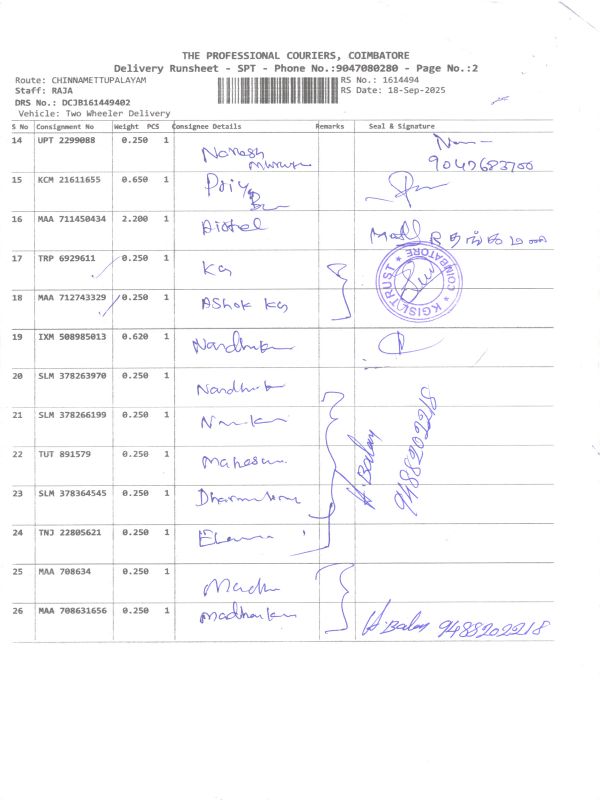 THE PROFESSIONAL COURIERS, COIMBATORE
Delivery Runsheet - SPT - Phone No.:9047080280 - Page No.:2
Route: CHINNAMETTUPALAYAM RS No.: 1614494
Staff: RAJA RS Date: 18-Sep-2025
DRS No.: DCJB161449402
Vehicle: Two Wheeler Delivery
S No Consignment No Weight PCS Consignee Details Remarks Seal & Signature
14 UPT 2299088 0.250 1 Naresh
15 KCM 21611655 0.650 1 Priya
16 MAA 711450434 2.200 1
17 TRP 6929611 0.250 1 KG
KGISL TRUST * COIMBATORE *
18 MAA 712743329 0.250 1 Ashok KG
19 IXM 508985013 0.620 1
20 SLM 378263970 0.250 1
21 SLM 378266199 0.250 1
22 TUT 891579 0.250 1
23 SLM 378364545 0.250 1
24 TNJ 22805621 0.250 1
H.Balay
9488202218
25 MAA 708634 0.250 1
26 MAA 708631656 0.250 1 H.Balay 9488202218